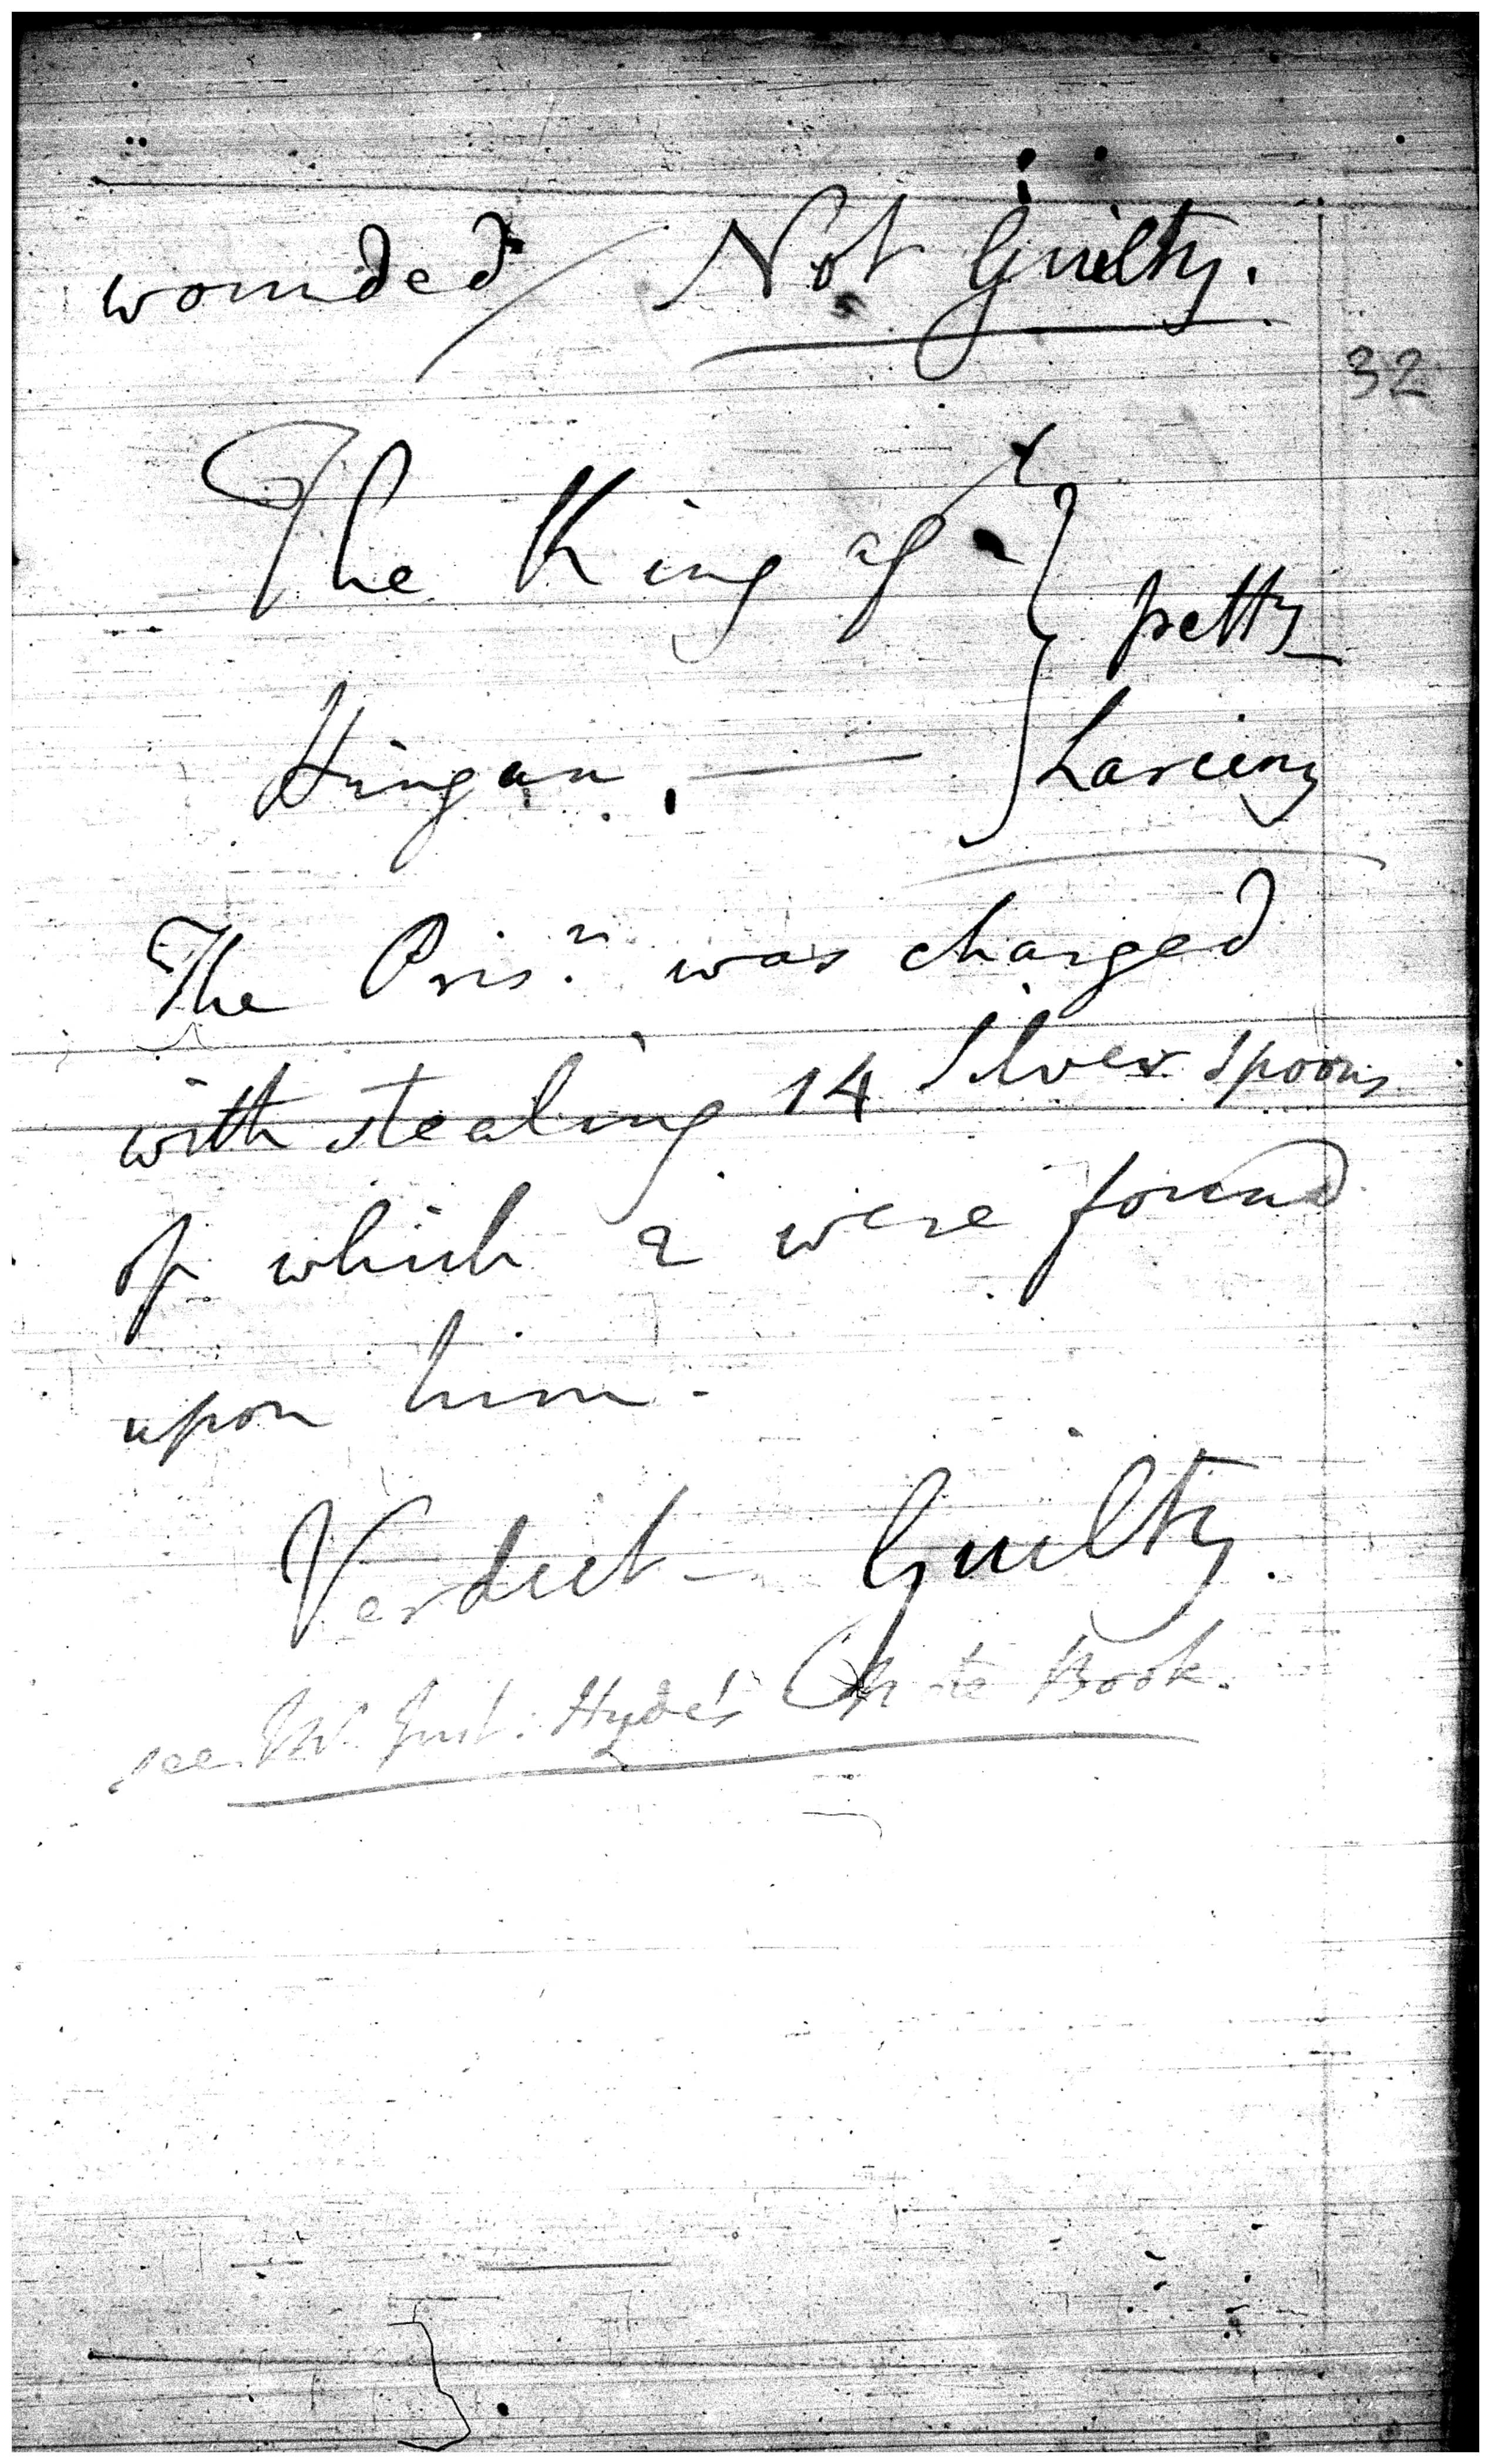 wounded / Not Guilty.
32
The King agt
petty
Hingan.
Larceny
The Prisr. was charged
with stealing 14 Silver Spoons
of which 2 were found
upon him -
Verdict - Guilty.
see Mr. Just: Hyde's Note Book.